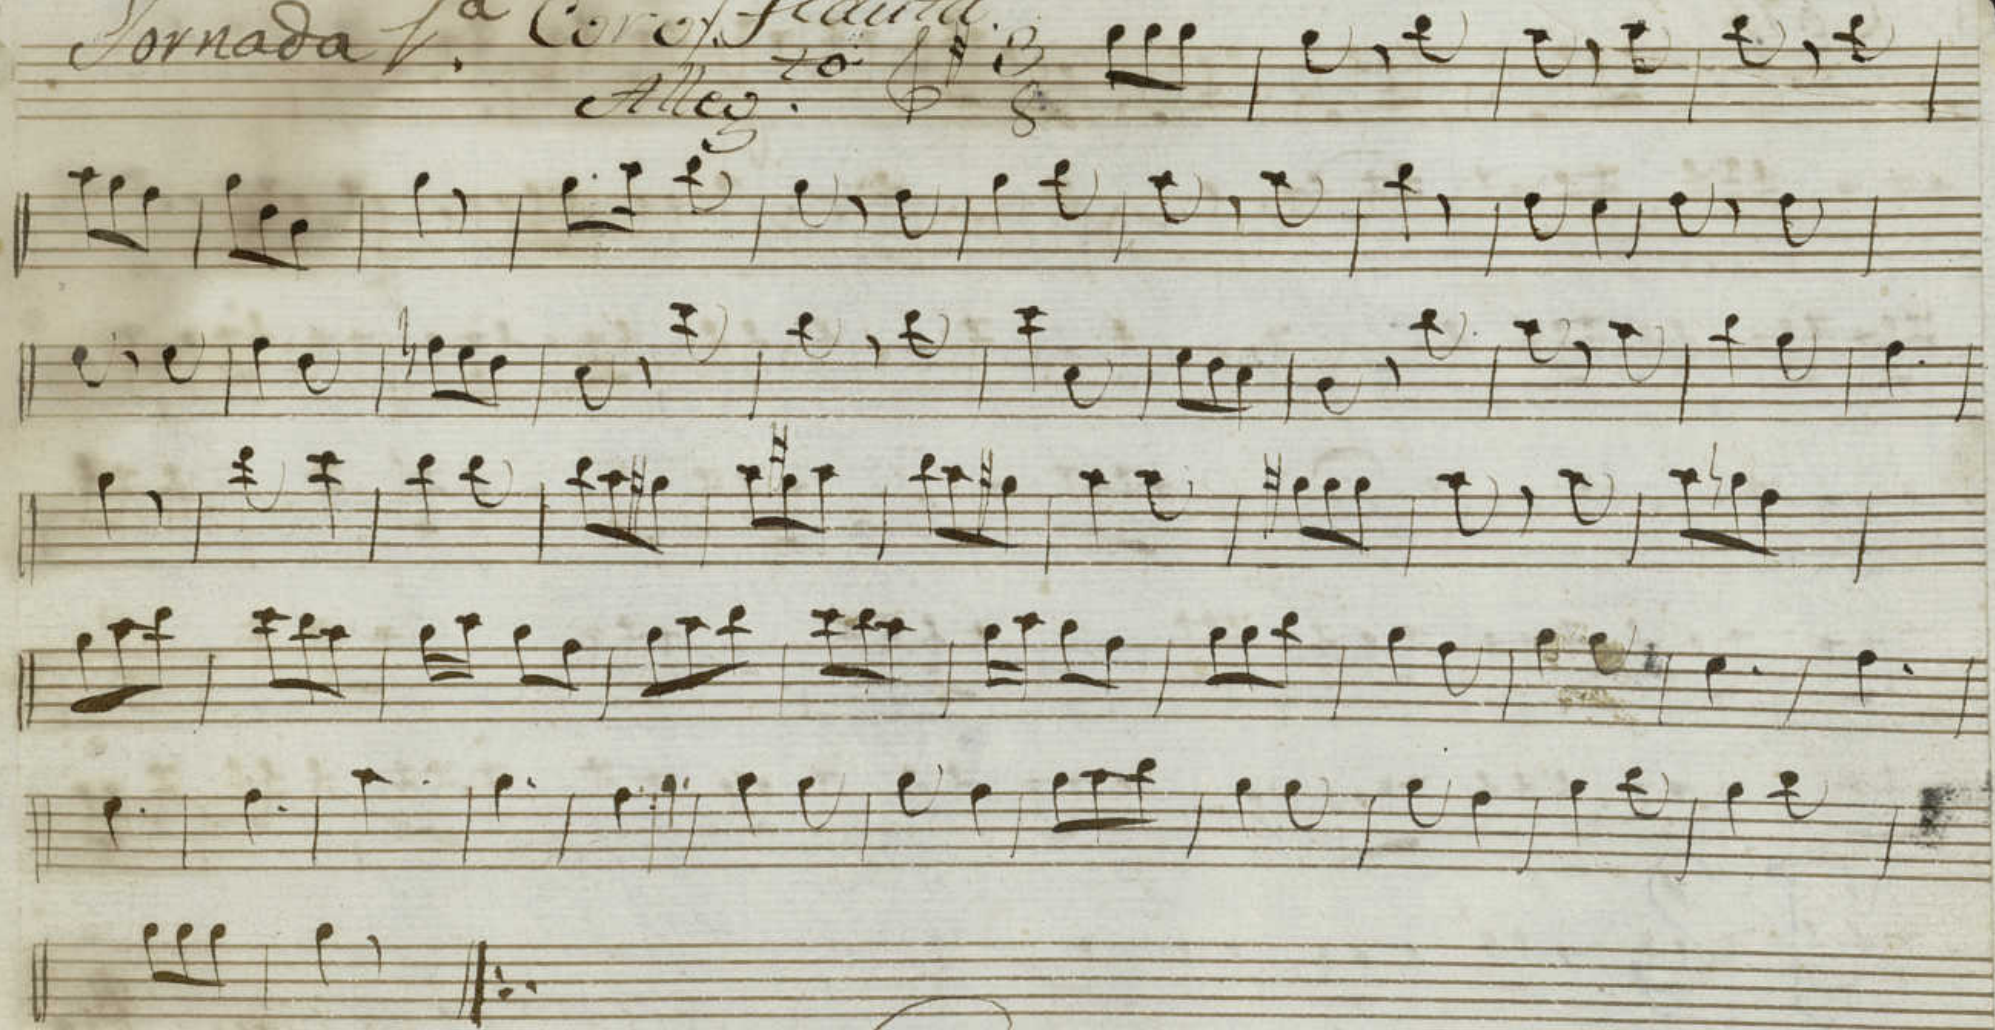 Jornada 1.ª Coro. Flauta.
Alleg.to 3 8